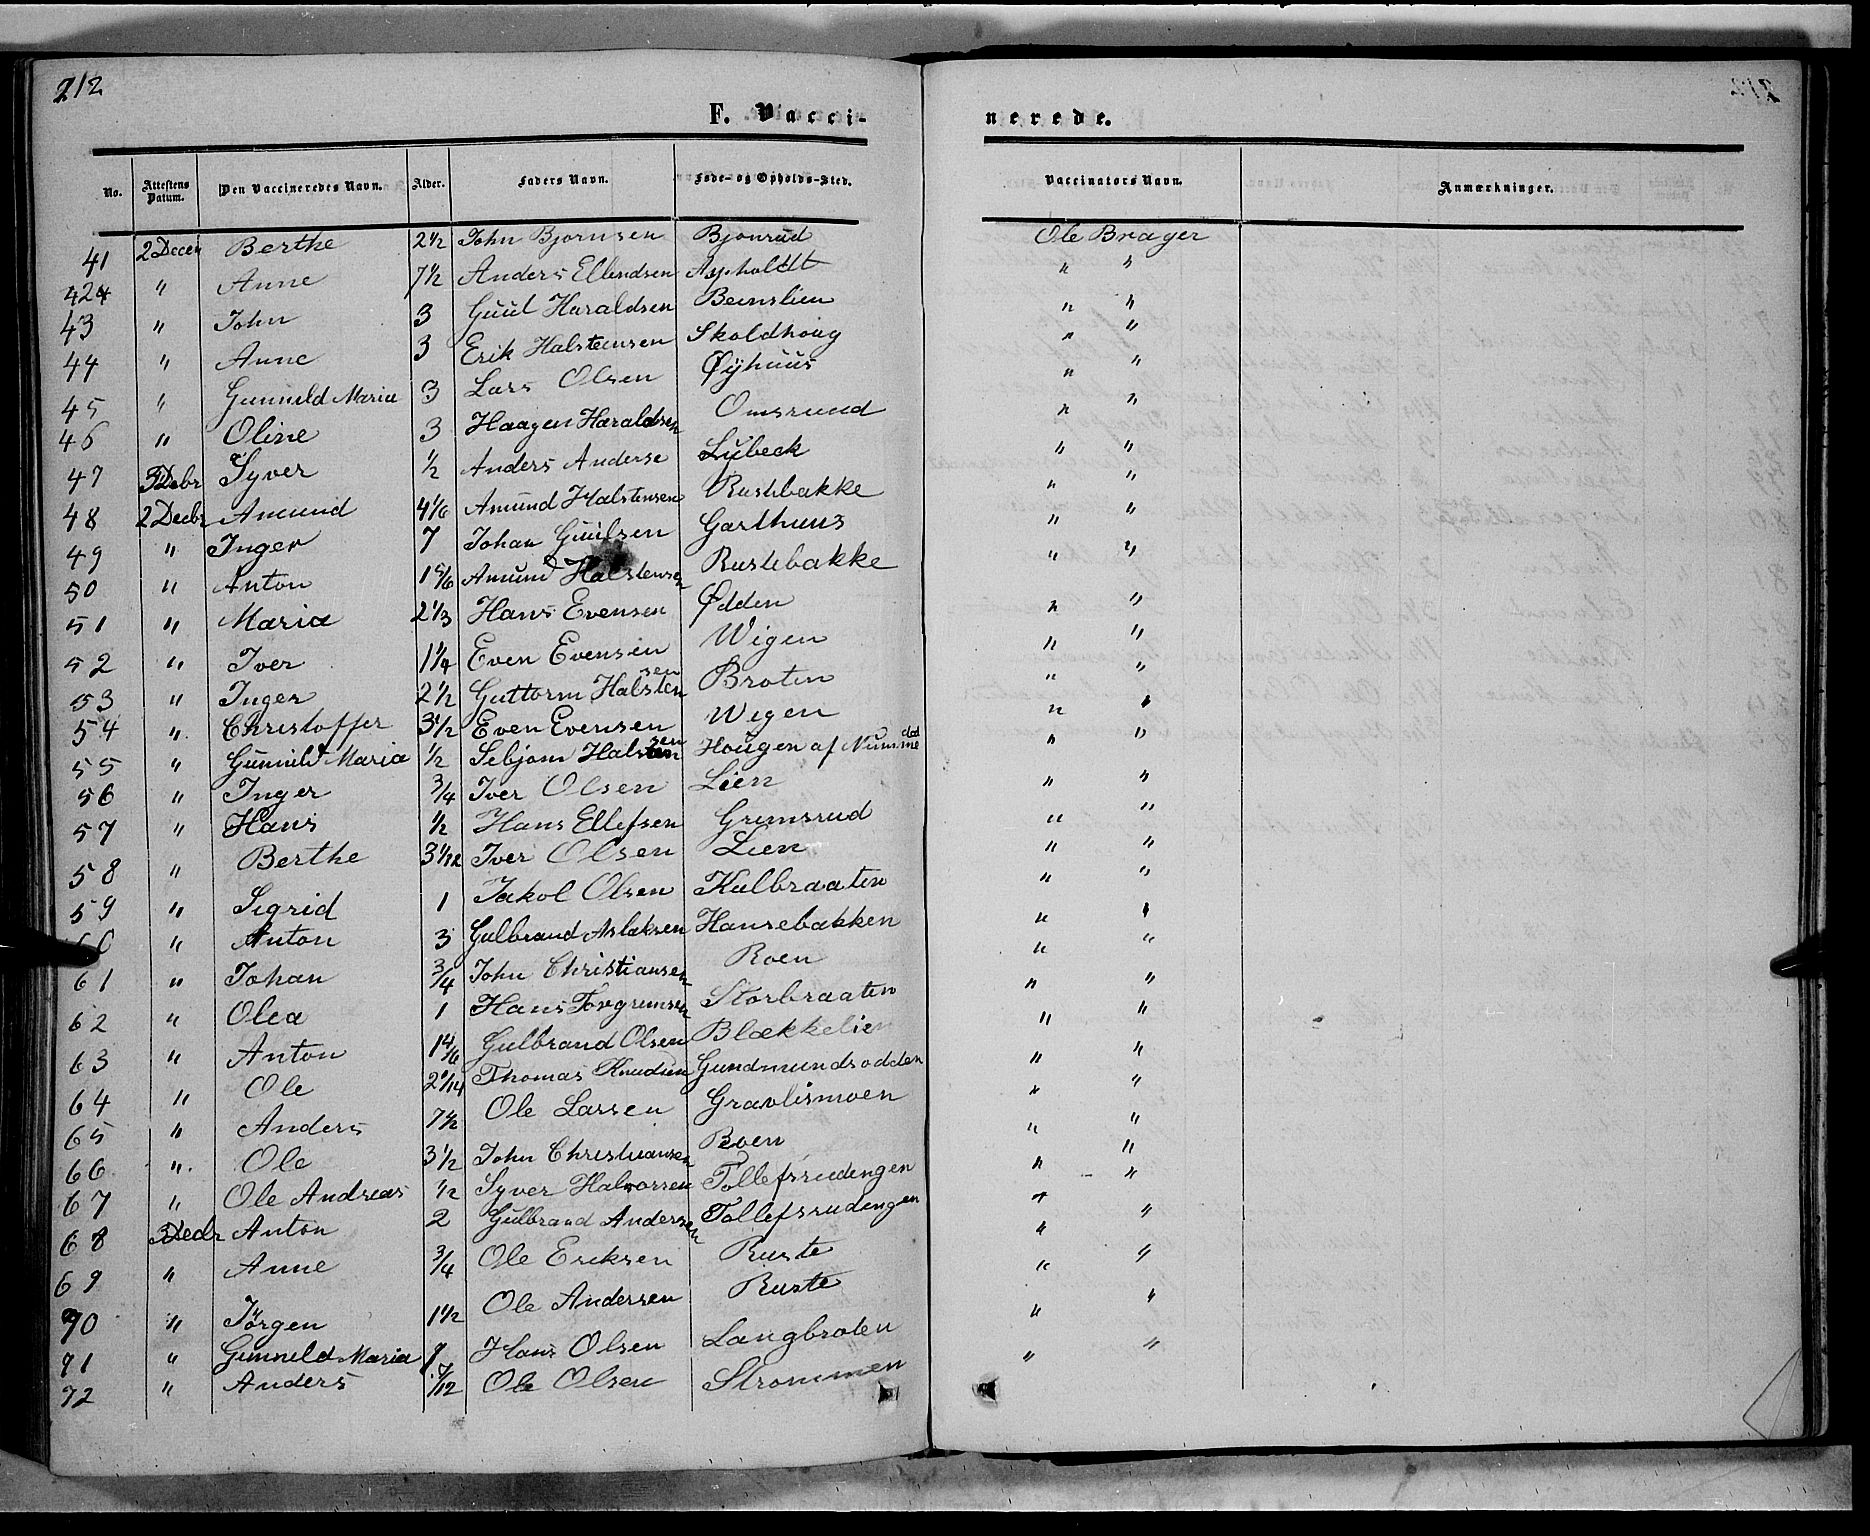 212
F. Vacci-
nerede.
No. Attestens Datum. Den Vaccineredes Navn. Alder. Faders Navn. Føde- og Opholds-Sted. Vaccinators Navn. Anmærkninger.
41 2 Decem Berthe 2 1/2 John Bjornsen Bjonrud Ole Brager
42 " Anne 7 1/2 Anders Ellendsen Aspholdt " "
43 " John 3 Guul Haraldsen Beinslien " "
44 " Anne 3 Erik Halsteinsen Skoldhoug " "
45 " Gunnild Maria 3 Lars Olsen Øyhuus " "
46 " Oline 3 Haagen Haraldsen Omsrund " "
47 3 Debr Syver 1/2 Anders Anderse Lübeck " "
48 2 Decbr Amund 4 1/6 Amund Halstensen Rustebakke " "
49 " Inger 7 Johan Guulsen Garthuus " "
50 " Anton 1 5/6 Amund Halstensen Rustebakke " "
51 " Maria 2 1/3 Hans Evensen Ødden " "
52 " Iver 1 1/4 Even Evensen Wigen " "
53 " Inger 2 1/2 Guttorm Halstensen Broten " "
54 " Christoffer 3 1/2 Even Evensen Wigen " "
55 " Gunnild Maria 1/2 Sebjorn Halstensen Hougen af Nummedal " "
56 " Inger 3/4 Iver Olsen Lien " "
57 " Hans 1/2 Hans Ellefsen Grimsrud " "
58 " Berthe 3 1/12 Iver Olsen Lien " "
59 " Sigrid 1 Jakob Olsen Kulbraaten " "
60 " Anton 3 Gulbrand Aslaksen Hansebakken " "
61 " Johan 3/4 John Christiansen Roen " "
62 " Olea 1 Hans Torgrimsen Storbraaten " "
63 " Anton 1 4/6 Gulbrand Olsen Blækkelien " "
64 " Ole Thomas Knudsen Gundmundsodden " "
65 " Anders 7 1/2 Ole Larsen Gravlismoen " "
66 " Ole 3 1/2 John Christiansen Roen " "
67 " Ole Andreas 1/2 Syver Halvorsen Tollefsrudengen " "
68 3 Decbr Anton 2 Gulbrand Andersen Tollefsrudengen " "
69 " Anne 3/4 Ole Eriksen Ruste " "
70 " Jörgen 1 1/2 Ole Andersen Ruste " "
71 " Gunnild Maria Hans Olsen Langbroten " "
72 " Anders 7/12 Ole Olsen Strommen